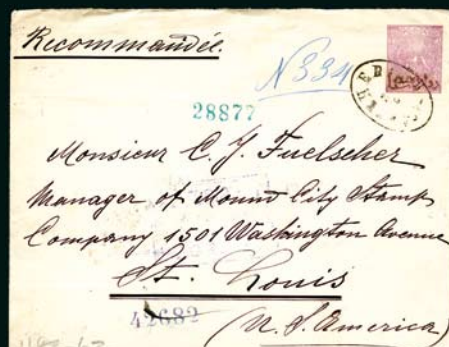 Recommandée.
N 334
28877
Monsieur C. J. Fuelscher
Manager of Mound City Stamp
Company 1501 Washington Avenue
St. Louis
42682
(U. S. America)